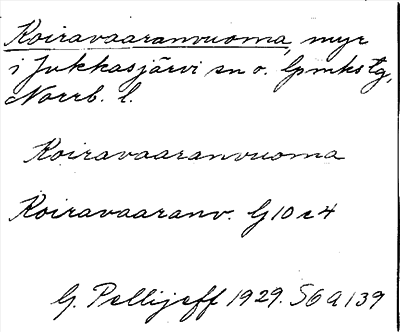 Koiravaaranvuoma, myr
i Jukkasjärvi sn o. lpmkstg,
Norrb. l.
Koiravaaranvuoma
Koiravaaranv. G10c4
G. Pellijeff 1929. S6A139